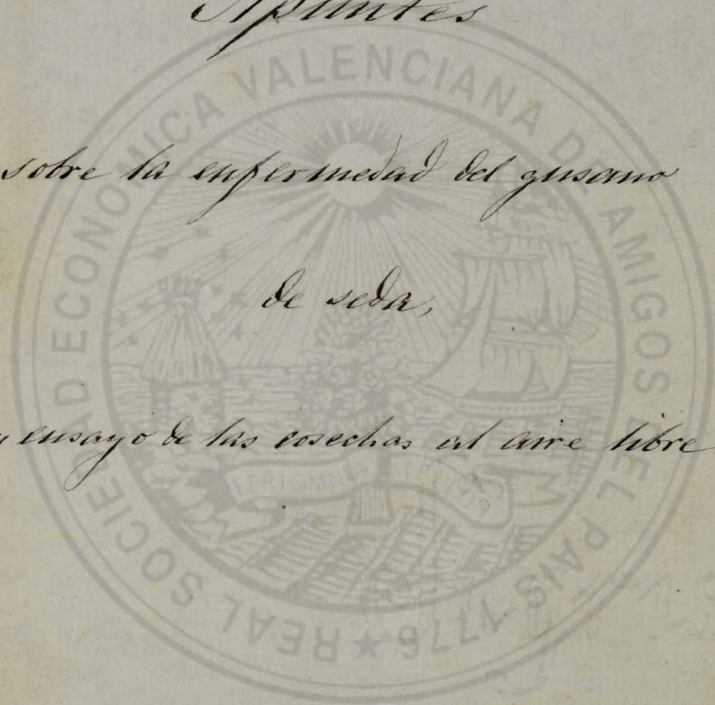 Apuntes
sobre la enfermedad del gusano
de seda,
y ensayo de las cosechas al aire libre
REAL SOCIEDAD ECONOMICA VALENCIANA D AMIGOS DEL PAIS 1776